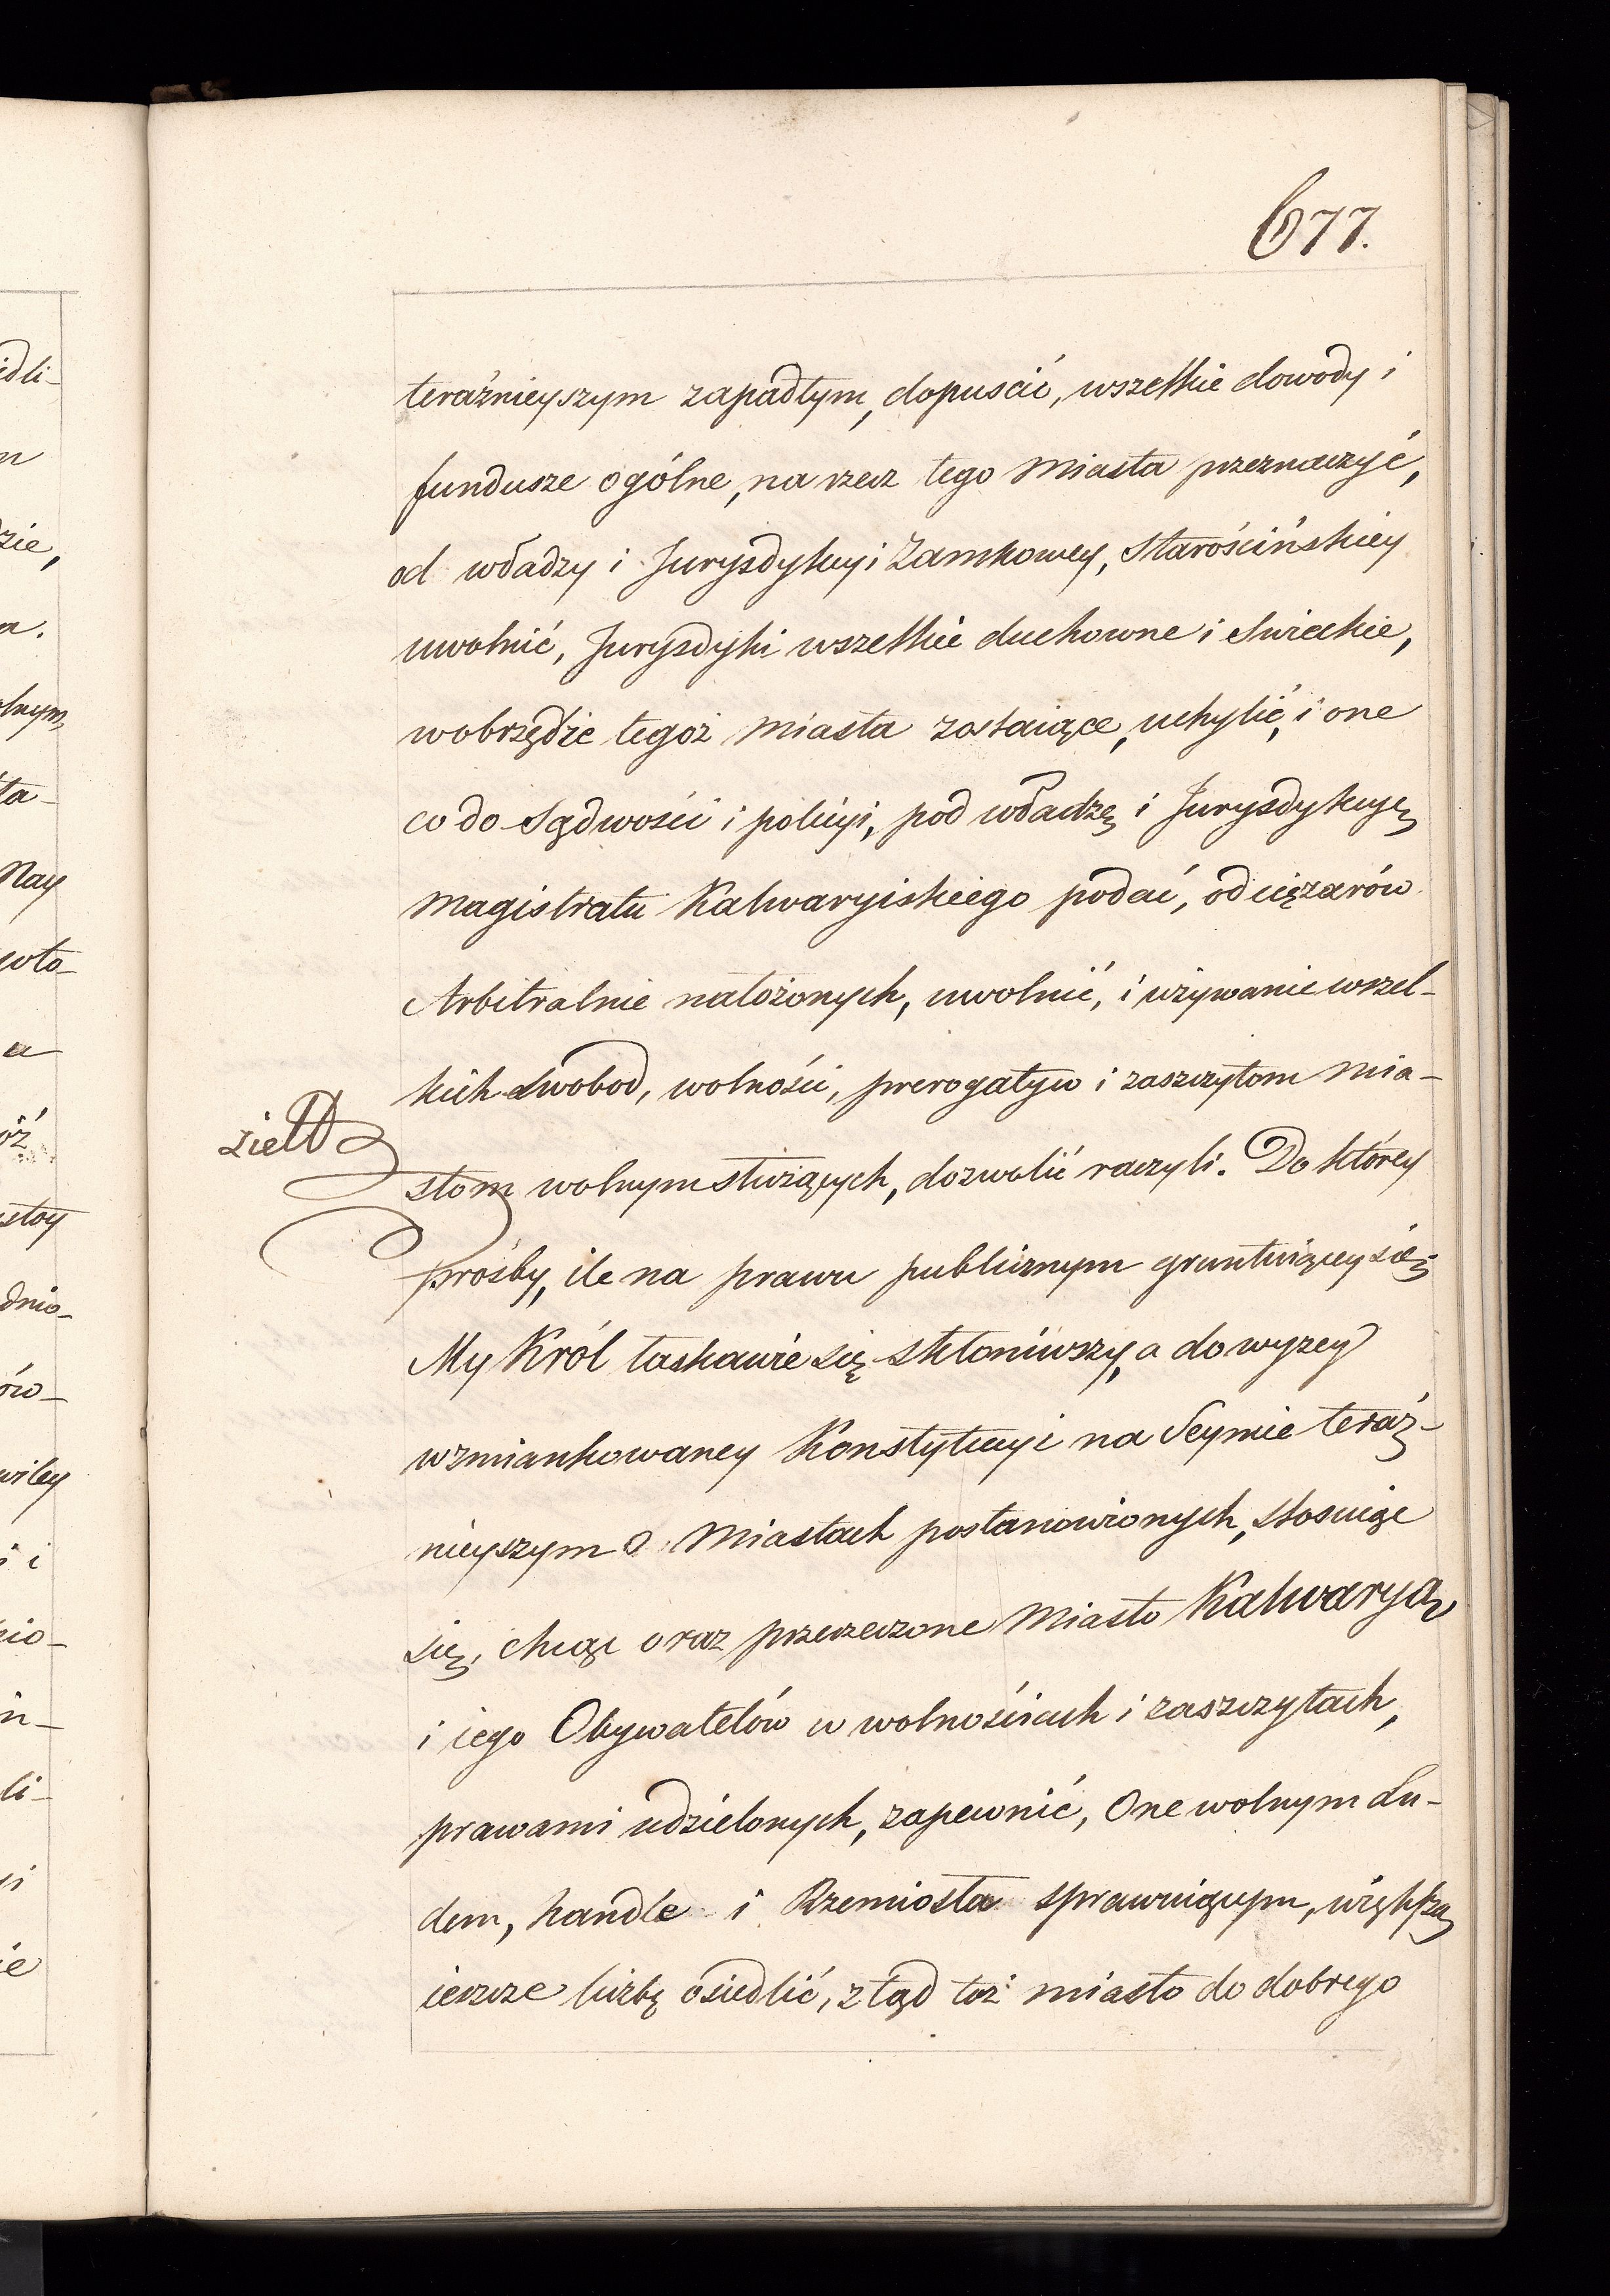 677.
teraźnieyszym zapadłym, dopuścić, wszelkie dowody i
fundusze ogólne, na rzecz tego Miasta przeznaczyć,
od władzy i Jurysdykcyi Zamkowey, Starościńskiey
uwolnić, Jurysdyki wszelkie duchowne i Swieckie,
wobrzędzie tegoż Miasta zostaiące, uchylić, i one
co do Sądwości i policyi, pod władzę i Jurysdykcyę
Magistratu Kalwaryiskiego podać, od ciężarów
Arbitralnie nałożonych, uwolnić, i używanie wszel-
kich Swobod, wolności, prerogatyw i zaszczytom Mia-
stom wolnym służących, dozwolić raczyli. Do którey
prośby, ile na prawu publicznym gruntuiącey się
My Król łaskawie się skłoniwszy, a do wyżey
wzmiankowaney Konstytucyi na Seymie teraź-
nieyszym o Miastach postanowionych, stosuiąc
się, chcąc oraz przerzeczone Miasto Kalwaryą
i iego Obywatelów w wolnościach i zaszczytach,
prawami udzielonych, zapewnić, One wolnym Lu-
dem, handle i Rzemiosła sprawuiącym, większą
ieszcze liczbę osiedlić, ztąd toż miasto do dobrego